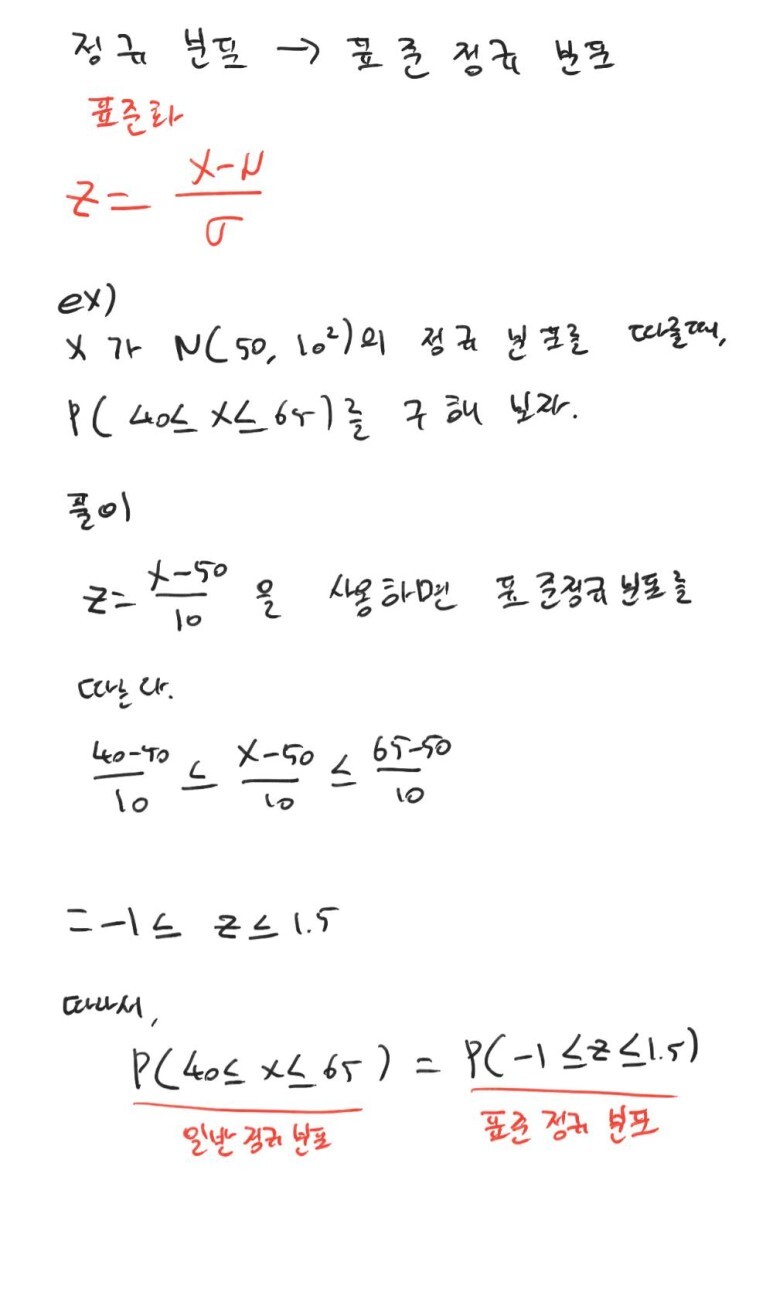 정규 분포 → 표준 정규 분포
표준화
Z = (X-μ)/σ
ex)
X 가 N(50, 10²)의 정규 분포를 따를때,
P( 40≤ X≤ 65)를 구해 보자.
풀이
Z= (X-50)/10 을 사용하면 표준정규분포를
따른다.
(40-50)/10 ≤ (X-50)/10 ≤ (65-50)/10
= -1≤ Z≤ 1.5
따라서,
P(40≤ X≤ 65) = P(-1 ≤Z≤1.5)
일반 정규 분포 표준 정규 분포